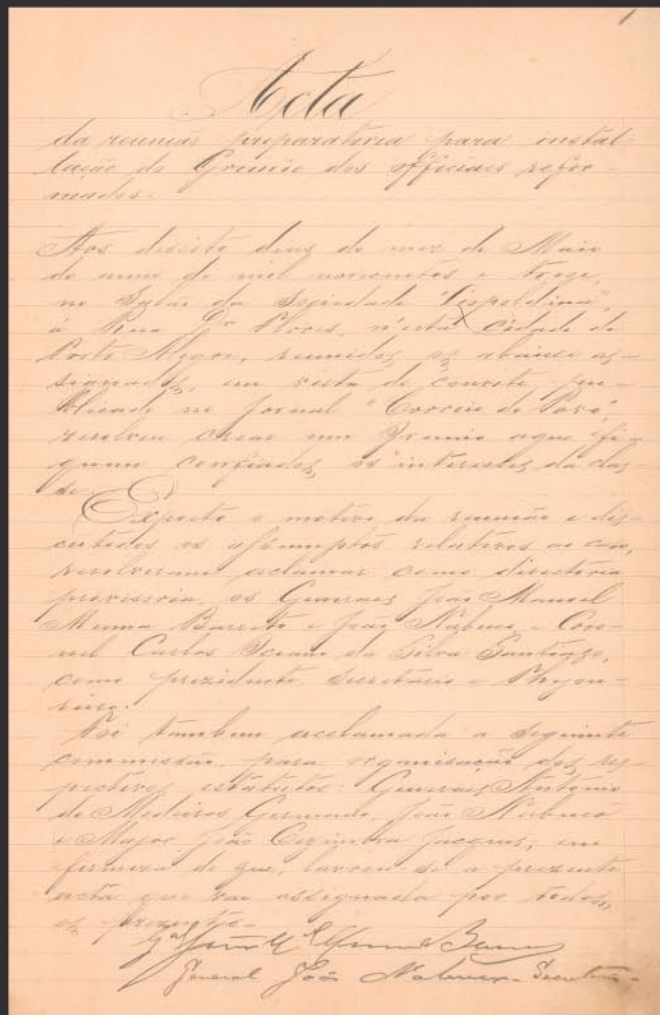 1
Acta
da reunião preparatoria para instal-
lação do Gremio dos officiaes refor-
mados.
Aos desoito dias do mez de Maio
do anno de mil novecentos e treze,
no Salão da Sociedade "Leopoldina",
á Rua Dr. Flores, n'esta cidade de
Porto Alegre, reunidos os abaixo as-
signados, em vista do convite pu-
blicado no jornal "Correio do Povo",
resolvem crear um Gremio a que fi-
quem confiados os interesses da clas-
se.
Exposto o motivo da reunião e dis-
cutidos os assumptos relativos ao caso,
resolveram aclamar como directoria
provisoria, os Generaes João Manoel
Menna Barreto e João Nabuco e Coro-
nel Carlos Oceano da Silva Santiago,
como prezidente, secretario e Thezou-
reiro.
Foi tambem acclamada a seguinte
commissão para organisação dos res-
pectivos estatutos: Generaes Antonio
de Medeiros Germano, João Nabuco
e Major João Cezimbra Jacques; em
firmeza do que, lavrou-se a prezente
acta que vae assignada por todos
os prezentes.
Gal João Ml Menna Barreto
General João Nabuco - Secretario -